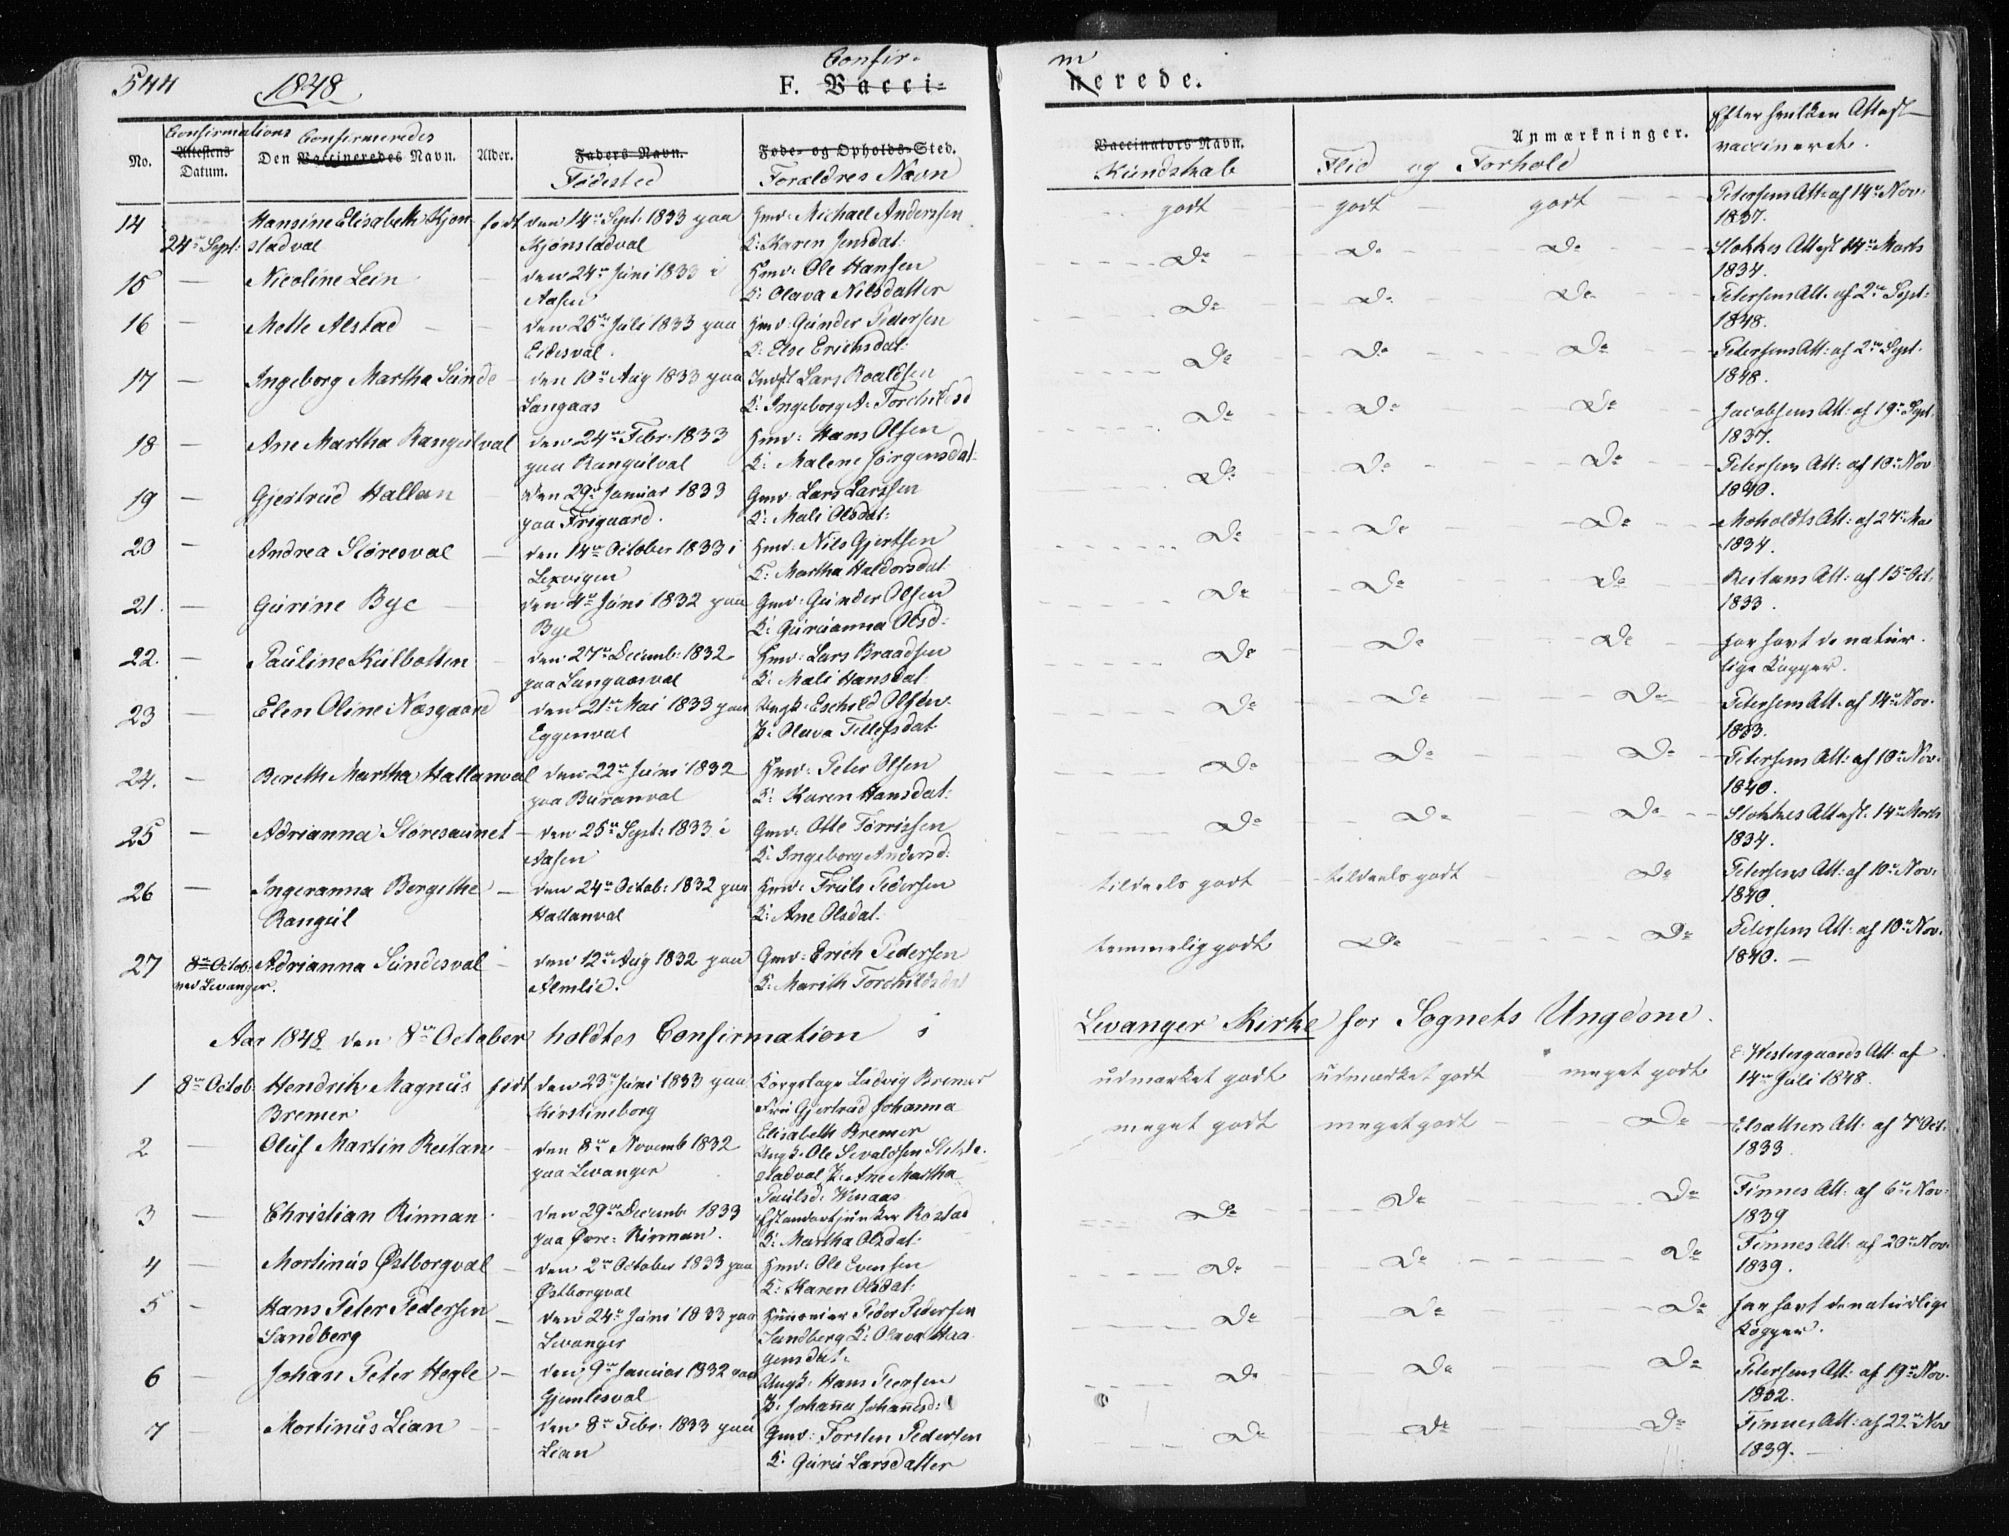 544 1848. F. Vacci- Confir-
m nerede.
No. Attestens Confirmations Datum. Den Vaccineredes Confirmeredes Navn. Alder. Faders Navn. Fødested Føde- og Opholds-Sted. Forældres Navn
Vaccinators Navn. Kundskab Flid og Forhold Anmærkninger. Efter hvilken Attest vaccinerede.
14 24de Sept: Hansine Elisabeth Kjøn- født den 14de Sept: 1833 paa Hmd: Michael Anderssen godt godt godt Petersens Att: af 14de Nov:
stadval Kjønstadval K: Karen Jensdat: 1837.
15 — Nicoline Lein den 24de Juni 1833 i Hmd: Ole Hansen Do Do Do Stokkes Attest 14de Marts
Aasen K: Olava Nilsdatter 1834.
16 — Mette Alstad den 25de Juli 1833 paa Hmd: Gunder Pedersen Do Do Do Petersens Att. af 2de Sept:
Eidesval. K: Else Erichsdat: 1848.
17 — Ingeborg Martha Sunde den 10de Aug 1833 paa Indst Lars Roaldsen Do Do Do Petersens Att: af 2de Sept.
Langaas K: Ingeborg A. Torchilsd 1848.
18 — Ane Martha Rangulval den 24de Febr: 1833 Hmd: Hans Olsen Do Do Do Jacobsens Att: af 19de Sept.
paa Rangulval K: Malene Jørgensdat: 1837.
19 — Gjertrud Hallan den 29de Januar 1833 Gmd: Lars Larssen Do Do Do Petersens Att: af 10de Nov
paa Frigaard. K: Mali Olsdat: 1840.
20 — Andrea Støresval den 14de October 1833 i Hmd: Nils Gjertsen Do Do Do Moholdts Att: af 27de Mai
Lexvigen K: Martha Haldorsdat: 1834.
21. — Gurine Bye den 4de Juni 1832 paa Gmd: Gunder Olsen Do Do Do Reitans Att: af 15de Oct.
Bye K: Guruanna Olsd: 1833.
22. — Pauline Kulbotten den 27de Decemb: 1832 Hmd: Lars Braadsen Do Do Do har havt de natur-
paa Langaasval K: Mali Hansdat: lige Kopper.
23 — Elen Oline Næsgaard den 21de Mai 1833 paa Ungk: Eschild Olsen Do Do Do Petersens Att. af 14de Nov.
Eggenval P: Olava Tellefsdat: 1833.
24. — Bereth Martha Hallanval den 22de Juni 1832 Hmd: Peter Olsen Do Do Do Petersens Att: af 10de Nov.
paa Buranval K: Karen Hansdat: 1840.
25 — Adrianna Støresaunet den 25de Sept: 1833 i Gmd: Otte Tørrissen Do Do Do Stokkes Attest. 14de Marts
Aasen K: Ingeborg Andersd: 1834.
26 — Ingeranna Bergithe den 24de Octob: 1832 paa Hmd: Truls Pedersen tildeels godt tildeels godt Do Petersens Att: af 10de Nov.
Rangul Hallanval K: Ane Olsdat: 1840.
27 8de Octob: Adrianna Sundesval den 12de Aug 1832 paa Gmd: Erich Pedersen temmelig godt Do Do Petersens Att: af 10de Nov.
ved Levanger. Almlie. K: Marith Torchildsdat 1840. —
Aar 1848 den 8de October holdtes Confirmation i Levanger Kirke for Sognets Ungdom.
1 8de Octob: Hendrik Magnus født den 23de Juni 1833 paa Corpslæge Ludvig Bremer udmærket godt udmærket godt meget godt C. Westergaards Att: af
Bremer Kirstineborg Fru Gjertrud Johanna 14de Juli 1848.
Elisabeth Bremer
2 — Oluf Martin Reitan den 8de Novemb 1832 Ungk: Ole Sevaldsen meget godt meget godt Do Att. af 7de Oct.
paa Levanger stadval, P: Ane Martha 1833.
Paulsd: Wenaas
3 — Christian Rinnan den 29de Decemb 1833 Estandartjunker Rostad Do Do Do Finnes Att: af 6te Nov:
paa Øvre- Rinnan. K: Martha Olsdat: 1839
4 — Mortinus Østborgval den 2de October 1833 paa Hmd: Ole Evensen Do Do Do Finnes Att: af 20de Nov:
Østborgval K: Karen Olsdat: 1839.
5 — Hans Peter Pedersen den 24de Juni 1833 paa Peder Pedersen Do Do Do har havt de naturlige
Sandberg Levanger Sandberg K: Olava Haa- Kopper.
gensdat:
6 — Johan Peter Hegle den 9de Januar 1832 paa Ungk: Hans Peersen Do Do Do Petersens Att: af 19de Nov.
Gjemlesval P: Johanna Johannsd: 1832.
7 — Mortinus Lian den 8de Febr: 1833 paa Gmd: Torsten Pedersen Do Do Do Finnes Att: af 22de Nov
Lian K: Guru Larsdatter 1839. —